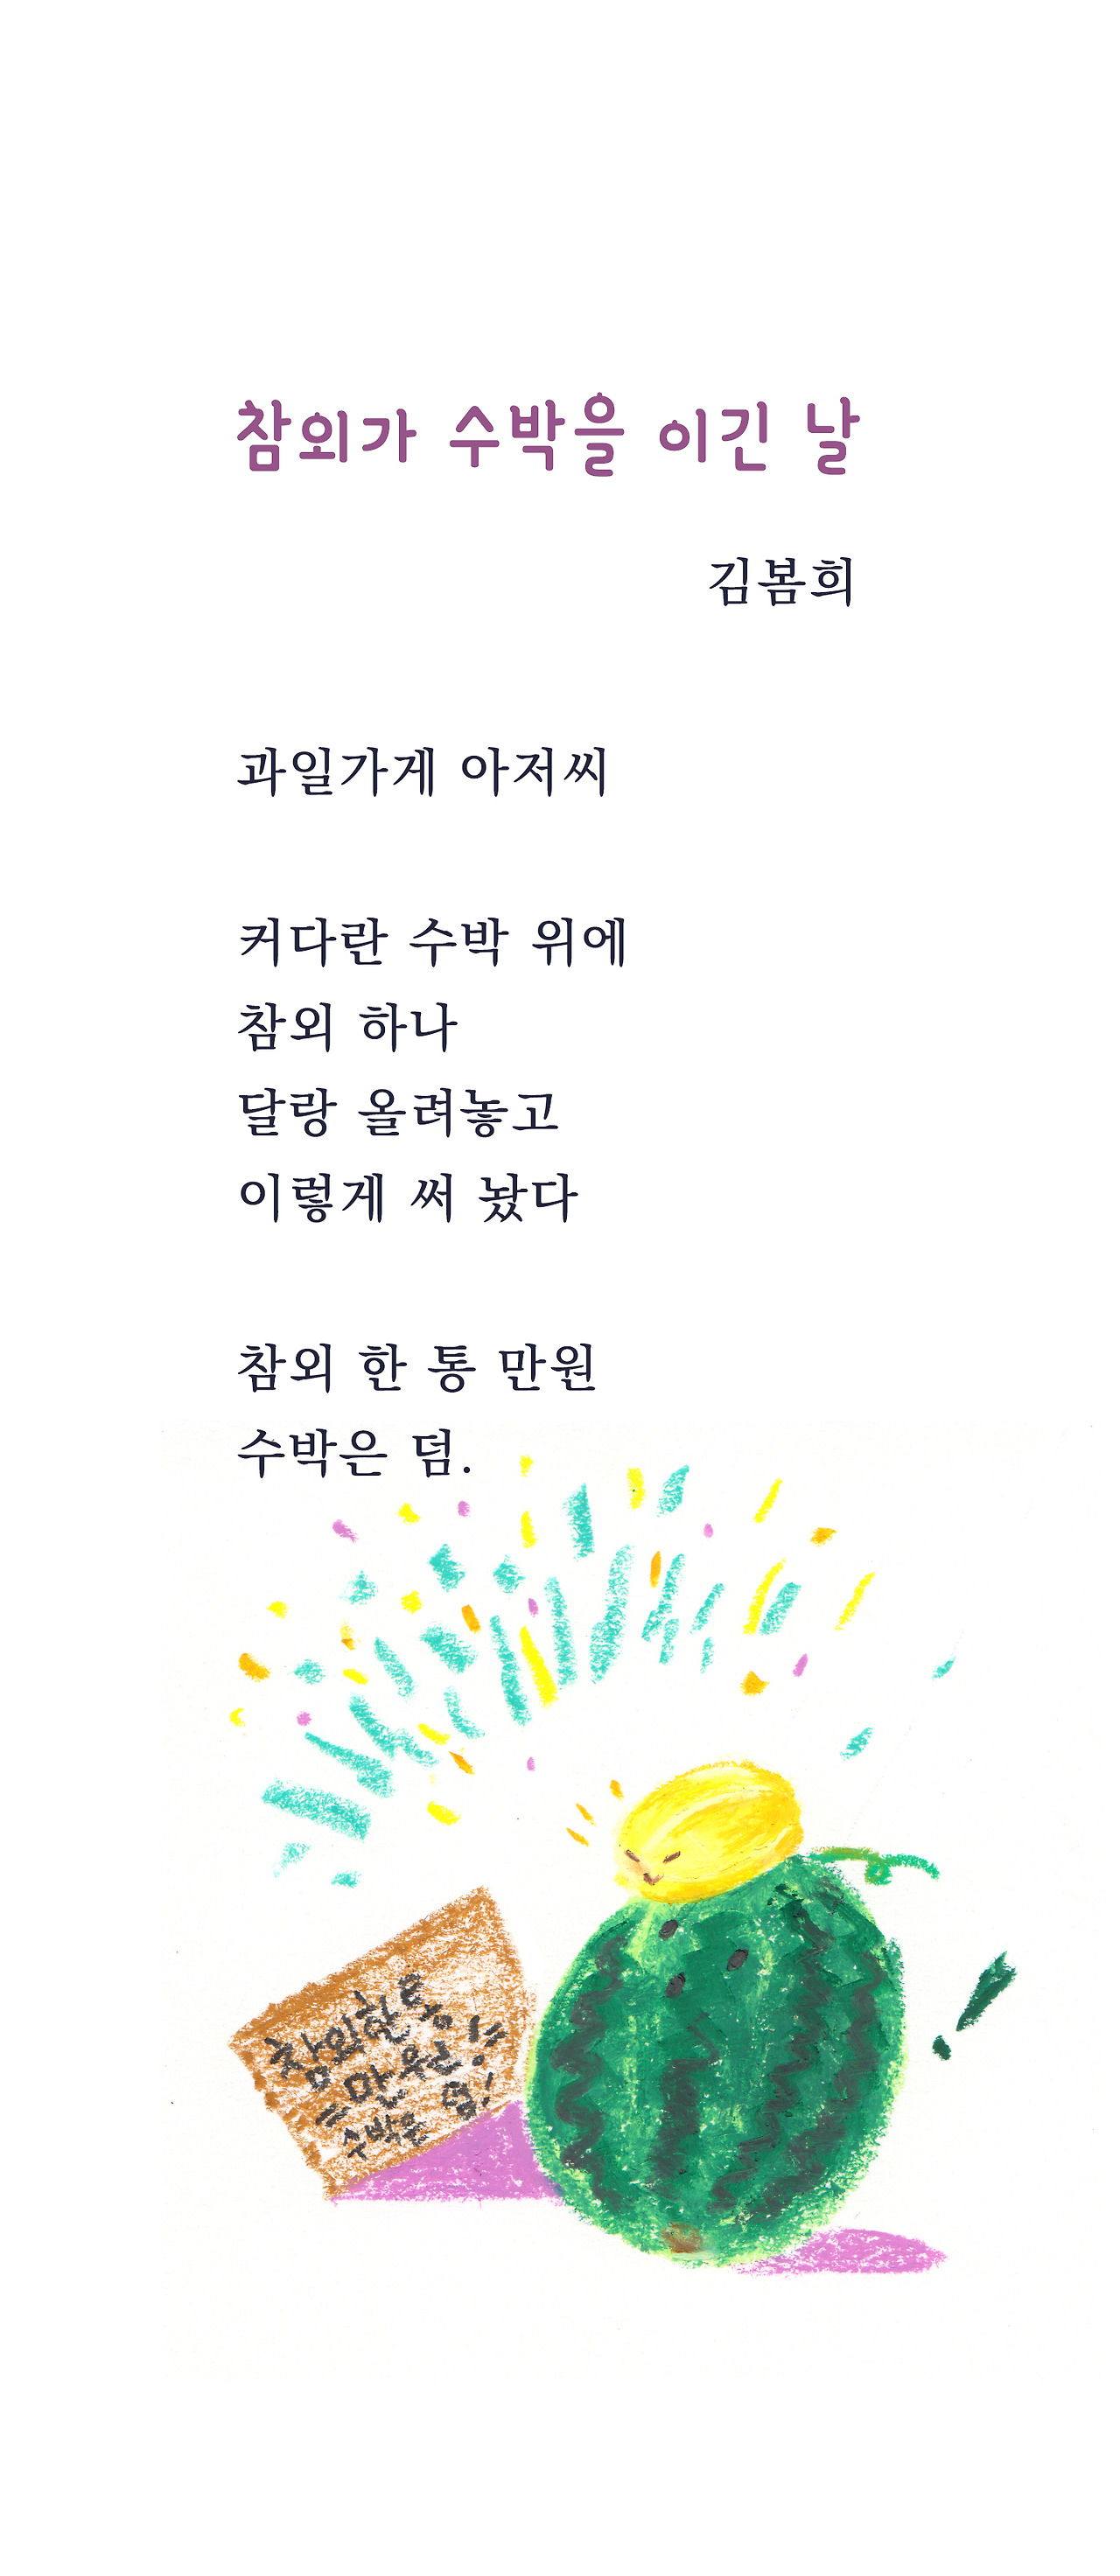 참외가 수박을 이긴 날
김봄희
과일가게 아저씨
커다란 수박 위에
참외 하나
달랑 올려놓고
이렇게 써 놨다
참외 한 통 만원
수박은 덤.
참외한통
=만원!=
수박은 덤!